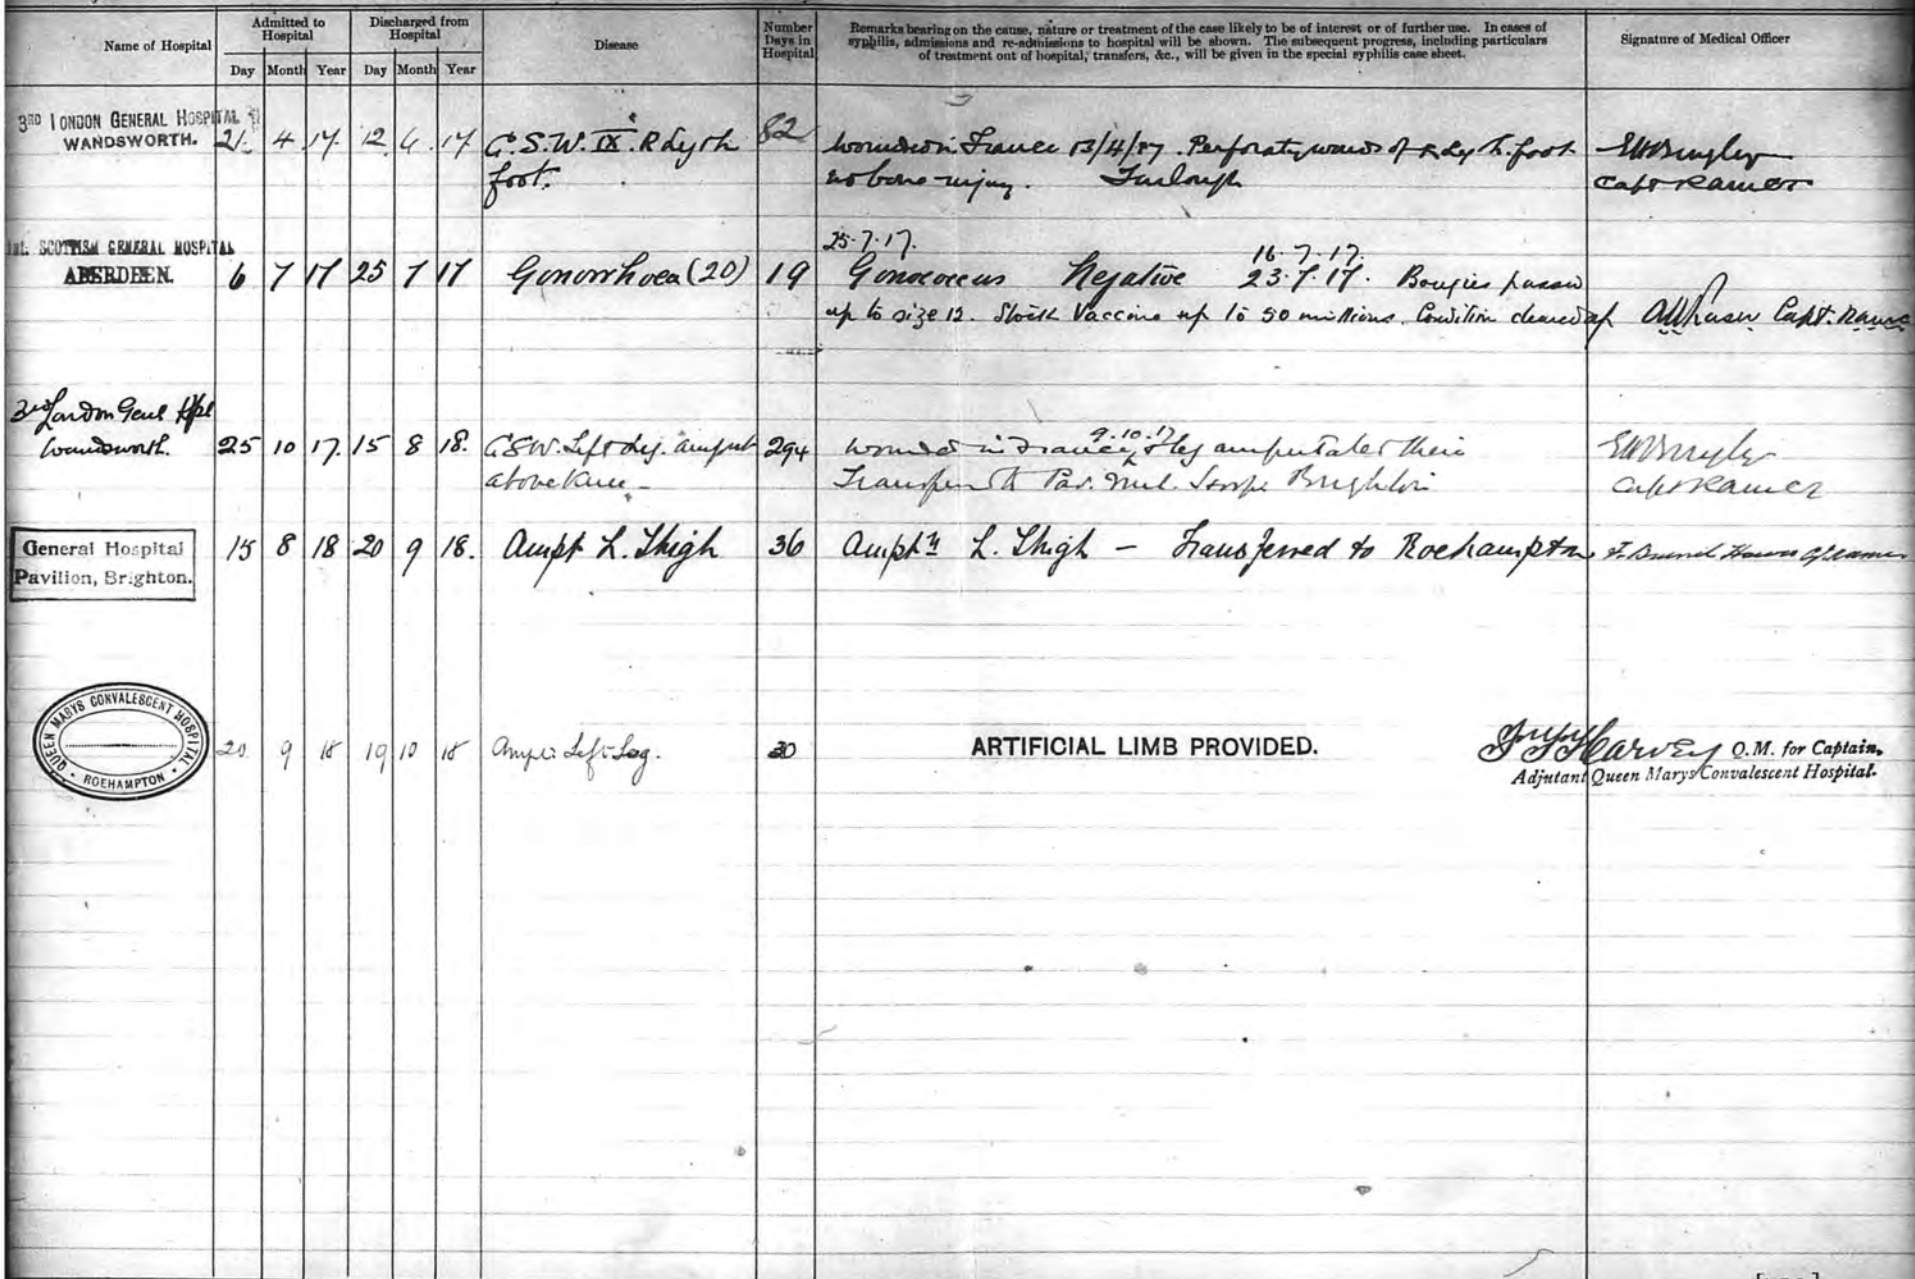 Name of Hospital
Admitted to Hospital
Discharged from Hospital
Disease
Number Days in Hospital
Remarks bearing on the cause, nature or treatment of the case likely to be of interest or of further use. In cases of
syphilis, admissions and re-admissions to hospital will be shown. The subsequent progress, including particulars
of treatment out of hospital, transfers, &c., will be given in the special syphilis case sheet.
Signature of Medical Officer
Day Month Year Day Month Year
3RD LONDON GENERAL HOSPITAL
WANDSWORTH. 21. 4 17. 12 6 17 G.S.W. IX. R Leg & foot. 82 wounded in France 13/4/17. of R Leg & foot
no bone injury. Furlough Capt RAMC
1st. SCOTTISH GENERAL HOSPITAL
ABERDEEN. 6 7 17 25 7 17 Gonorrhoea (20) 19
25.7.17. 16.7.17.
Gonococcus Negative 23.7.17. Bougies passed
up to size 12. Stock Vaccine up to 50 millions. Condition cleared up Capt. RAMC
3rd London Genl Hpl
Wandsworth. 25 10 17. 15 8 18. GSW. Left Leg. amput 294 wounded in France 9.10.17 & leg amputated there
above knee - Brighton Capt RAMC
General Hospital
Pavilion, Brighton. 15 8 18 20 9 18. Ampt L. Thigh 36 Amptn L. Thigh — Transferred to Roehampton
QUEEN MARYS CONVALESCENT HOSPITAL
ROEHAMPTON
20 9 18 19 10 18 Left Leg. 30 ARTIFICIAL LIMB PROVIDED. Harvey Q.M. for Captain,
Adjutant Queen Marys Convalescent Hospital.